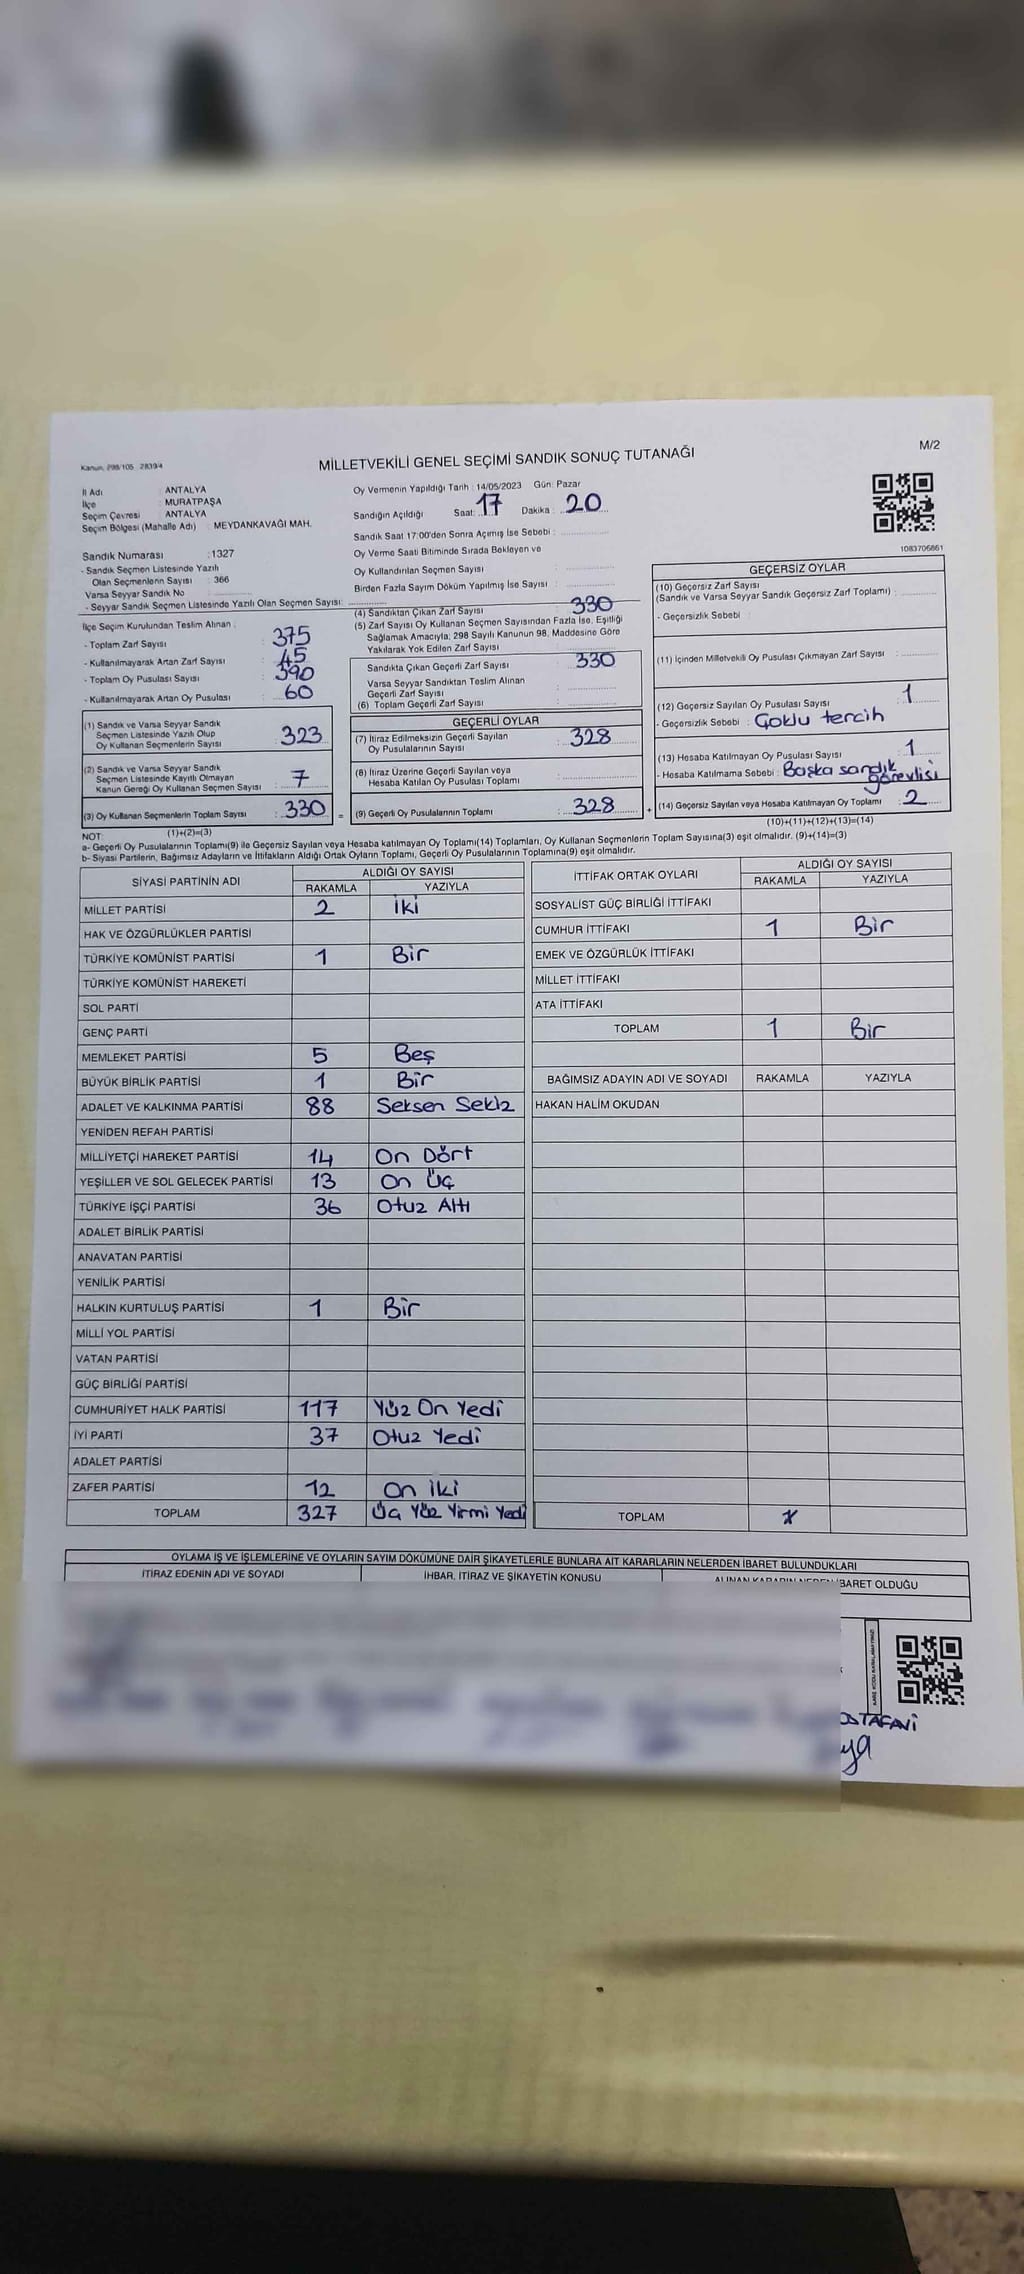 Kanun, 298/105 , 2839/4
MİLLETVEKİLİ GENEL SEÇİMİ SANDIK SONUÇ TUTANAĞI
M/2
İl Adı : ANTALYA
İlçe : MURATPAŞA
Seçim Çevresi : ANTALYA
Seçim Bölgesi (Mahalle Adı) : MEYDANKAVAĞI MAH.
Sandık Numarası : 1327
- Sandık Seçmen Listesinde Yazılı
Olan Seçmenlerin Sayısı : 366
Varsa Seyyar Sandık No
- Seyyar Sandık Seçmen Listesinde Yazılı Olan Seçmen Sayısı:
İlçe Seçim Kurulundan Teslim Alınan :
- Toplam Zarf Sayısı : 375
- Kullanılmayarak Artan Zarf Sayısı : 45
- Toplam Oy Pusulası Sayısı : 390
- Kullanılmayarak Artan Oy Pusulası : 60
(1) Sandık ve Varsa Seyyar Sandık
Seçmen Listesinde Yazılı Olup
Oy Kullanan Seçmenlerin Sayısı : 323
(2) Sandık ve Varsa Seyyar Sandık
Seçmen Listesinde Kayıtlı Olmayan
Kanun Gereği Oy Kullanan Seçmen Sayısı : 7
(3) Oy Kullanan Seçmenlerin Toplam Sayısı : 330 =
(1)+(2)=(3)
Oy Vermenin Yapıldığı Tarih : 14/05/2023 Gün: Pazar
Sandığın Açıldığı Saat: 17 Dakika : 20
Sandık Saat 17:00'den Sonra Açımış İse Sebebi :
Oy Verme Saati Bitiminde Sırada Bekleyen ve
Oy Kullandırılan Seçmen Sayısı :
Birden Fazla Sayım Döküm Yapılmış İse Sayısı :
(4) Sandıktan Çıkan Zarf Sayısı : 330
(5) Zarf Sayısı Oy Kullanan Seçmen Sayısından Fazla İse, Eşitliği
Sağlamak Amacıyla, 298 Sayılı Kanunun 98. Maddesine Göre
Yakılarak Yok Edilen Zarf Sayısı :
Sandıkta Çıkan Geçerli Zarf Sayısı : 330
Varsa Seyyar Sandıktan Teslim Alınan
Geçerli Zarf Sayısı :
(6) Toplam Geçerli Zarf Sayısı :
GEÇERLİ OYLAR
(7) İtiraz Edilmeksizin Geçerli Sayılan
Oy Pusulalarının Sayısı : 328
(8) İtiraz Üzerine Geçerli Sayılan veya
Hesaba Katılan Oy Pusulası Toplamı :
(9) Geçerli Oy Pusulalarının Toplamı : 328 +
1083706861
GEÇERSİZ OYLAR
(10) Geçersiz Zarf Sayısı
(Sandık ve Varsa Seyyar Sandık Geçersiz Zarf Toplamı) :
- Geçersizlik Sebebi :
(11) İçinden Milletvekili Oy Pusulası Çıkmayan Zarf Sayısı :
(12) Geçersiz Sayılan Oy Pusulası Sayısı : 1
- Geçersizlik Sebebi : Çoklu tercih
(13) Hesaba Katılmayan Oy Pusulası Sayısı : 1
- Hesaba Katılmama Sebebi : Başka sandık
görevlisi
(14) Geçersiz Sayılan veya Hesaba Katılmayan Oy Toplamı : 2
(10)+(11)+(12)+(13)=(14)
NOT:
a- Geçerli Oy Pusulalarının Toplamı(9) ile Geçersiz Sayılan veya Hesaba katılmayan Oy Toplamı(14) Toplamları, Oy Kullanan Seçmenlerin Toplam Sayısına(3) eşit olmalıdır. (9)+(14)=(3)
b- Siyasi Partilerin, Bağımsız Adayların ve İttifakların Aldığı Ortak Oyların Toplamı, Geçerli Oy Pusulalarının Toplamına(9) eşit olmalıdır.
SİYASİ PARTİNİN ADI ALDIĞI OY SAYISI
RAKAMLA YAZIYLA
MİLLET PARTİSİ 2 İki
HAK VE ÖZGÜRLÜKLER PARTİSİ
TÜRKİYE KOMÜNİST PARTİSİ 1 Bir
TÜRKİYE KOMÜNİST HAREKETİ
SOL PARTİ
GENÇ PARTİ
MEMLEKET PARTİSİ 5 Beş
BÜYÜK BİRLİK PARTİSİ 1 Bir
ADALET VE KALKINMA PARTİSİ 88 Seksen Sekiz
YENİDEN REFAH PARTİSİ
MİLLİYETÇİ HAREKET PARTİSİ 14 On Dört
YEŞİLLER VE SOL GELECEK PARTİSİ 13 On Üç
TÜRKİYE İŞÇİ PARTİSİ 36 Otuz Altı
ADALET BİRLİK PARTİSİ
ANAVATAN PARTİSİ
YENİLİK PARTİSİ
HALKIN KURTULUŞ PARTİSİ 1 Bir
MİLLİ YOL PARTİSİ
VATAN PARTİSİ
GÜÇ BİRLİĞİ PARTİSİ
CUMHURİYET HALK PARTİSİ 117 Yüz On Yedi
İYİ PARTİ 37 Otuz Yedi
ADALET PARTİSİ
ZAFER PARTİSİ 12 On İki
TOPLAM 327 Üç Yüz Yirmi Yedi
İTTİFAK ORTAK OYLARI ALDIĞI OY SAYISI
RAKAMLA YAZIYLA
SOSYALİST GÜÇ BİRLİĞİ İTTİFAKI
CUMHUR İTTİFAKI 1 Bir
EMEK VE ÖZGÜRLÜK İTTİFAKI
MİLLET İTTİFAKI
ATA İTTİFAKI
TOPLAM 1 Bir
BAĞIMSIZ ADAYIN ADI VE SOYADI RAKAMLA YAZIYLA
HAKAN HALİM OKUDAN
TOPLAM
OYLAMA İŞ VE İŞLEMLERİNE VE OYLARIN SAYIM DÖKÜMÜNE DAİR ŞİKAYETLERLE BUNLARA AİT KARARLARIN NELERDEN İBARET BULUNDUKLARI
İTİRAZ EDENİN ADI VE SOYADI İHBAR, İTİRAZ VE ŞİKAYETİN KONUSU ALINAN KARARIN NEDEN İBARET OLDUĞU